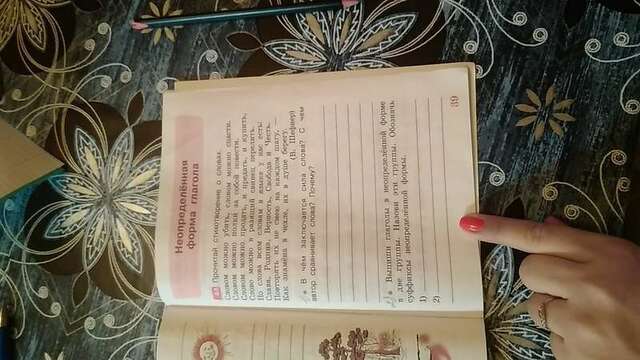 Неопределённая
форма глагола
Прочитай стихотворение о словах.
Словом можно убить, словом можно спасти,
Словом можно полки за собой повести.
Словом можно продать, и предать, и купить,
Слово можно в разящий свинец перелить.
Но слова всем словам в языке у нас есть:
Слава, Родина, Верность, Свобода и Честь.
Повторять их не смею на каждом шагу, —
Как знамёна в чехле, их в душе берегу.
(В. Шефнер)
В чём заключается сила слова? С чем
автор сравнивает слова? Почему?
Выпиши глаголы в неопределённой форме
в две группы. Назови эти группы. Обозначь
суффиксы неопределённой формы.
1)
2)
39